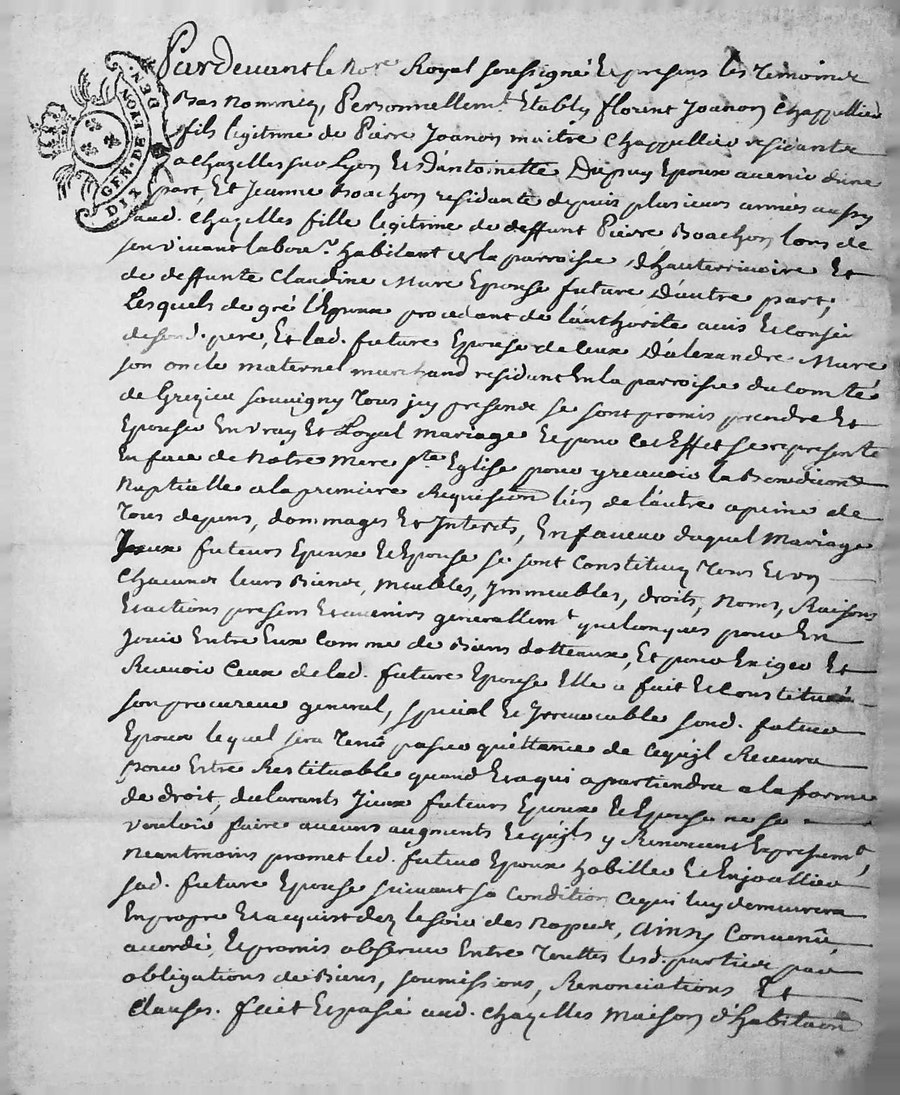 GEN. DE LYON. DIX DEN.
Pardevant le No.re Royal soussigné Et presens les temoins
Bas nommés, Personnellem.t Etably florint Joanon Chappellier
fils legitime de Pierre Joanon maitre Chappellier residants
a Chazelles sur Lyon Et d'antoinette Dupuy Epoux avenir d'une
part, Et Jeanne Boachon residante depuis plusieurs années aussy
aud. Chazelles fille legitime de deffunt Pierre Boachon lors de
son vivant labou.r habitant en la parroisse d'hauterivoire Et
de deffunte Claudine Mure Epouse future D'autre part,
Lesquels de gré l'Epoux procedant de l'authorité avis Et Conseil
desond. pere, Et lad. future Epouse de ceux D'alexandre Mure
son oncle maternel marchand residant En la parroisse du Comté
de Grezieu souvigny tous icy presents se sont promis prendre Et
Epouser En vray Et Loyal mariage Et pour cet Effet se representer
En face de Notre Mere s.te Eglise pour y recevoir la Benediction
Nuptielle a la premiere Requisition l'un de l'autre a peine de
tous depens, dommages Et Interets, En faveur duquel Mariage
Iceux futeurs Epoux Et Epouse se sont Constitués tous Et un
Chacuns leurs Biens, meubles, Immeubles, droits, Noms, Raisons
Et actions presens Et avenirs generallem.t quelconques pour En
Jouir Entre Eux Comme de Biens dotteaux, Et pour Exiger Et
Recevoir Ceux de lad. future Epouse Elle a fait Et Constitué
son procureur general, special Et Irrevocable sond. futeur
Epoux lequel sera tenu passer quittance de Cequ'il Recevra
pour Estre Restituable quand Et a qui apartiendra a la forme
de droit, declarants Iceux futeurs Epoux Et Epouse ne se
vouloir faire aucuns augments Et qu'ils y Renoncent Expressem.t,
Neantmoins promet led. futeur Epoux habiller Et Enjoaillier
sad. future Epouse suivant sa Condition Cequi luy demeurera
En propre Et acquis dez le soir des Nopces, Ainsy Convenu,
accordé, Et promis observer Entre touttes lesd. parties par
obligations de Biens, soumissions, Renonciations Et
Clauses. fait Et passé aud. Chazelles maison d'habitaon